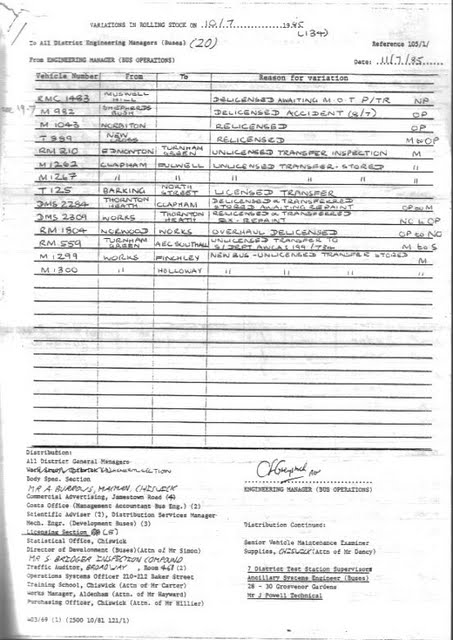 VARIATIONS IN ROLLING STOCK ON 10/7 1985
(134)
To All District Engineering Managers (Buses) (20)
Reference 103/1/
From ENGINEERING MANAGER (BUS OPERATIONS)
Date: 11/7/85
Vehicle Number From To Reason for variation
RMC 1483 MUSWELL HILL DELICENSED AWAITING M.O.T P/TR NP
19.7 M 982 SHEPHERDS BUSH DELICENSED ACCIDENT (8/7) OP
M 1043 NORBITON RELICENSED OP
T 889 NEW CROSS RELICENSED M to OP
RM 210 EDMONTON TURNHAM GREEN UNLICENSED TRANSFER INSPECTION M
M 1262 CLAPHAM MULWELL UNLICENSED TRANSFER - STORED 11
M 1267 11 11 11 11 11 11
T 125 BARKING NORTH STREET LICENSED TRANSFER
DMS 2284 THORNTON HEATH CLAPHAM DELICENSED & TRANSFERRED STORED AWAITING REPAINT OP to M
DMS 2309 WORKS THORNTON HEATH RELICENSED & TRANSFERRED EX-REPAINT NO to OP
RM 1804 NORWOOD WORKS OVERHAUL DELICENSED OP to NO
RM 559 TURNHAM GREEN AEC SOUTHALL UNLICENSED TRANSFER TO M to S
M 1299 WORKS FINCHLEY NEW BUS - UNLICENSED TRANSFER STORED M
M 1300 11 HOLLOWAY 11 11 11 11
Distribution:
All District General Managers
Body Spec. Section
MR A BURROWS, CHISWICK
Commercial Advertising, Jamestown Road (4)
Costs Office (Management Accountant Bus Eng.) (2)
Scientific Adviser (2), Distribution Services Manager
Mech. Engr. (Development Buses) (3)
Licensing Section (5)
Statistical Office, Chiswick
Director of Development (Buses)(Attn of Mr Simon)
MR S INSPECTION COMPOUND
Traffic Auditor, BROADWAY, Room 468 (2)
Operations Systems Officer 210-212 Baker Street
Training School, Chiswick (Attn of Mr Carter)
Works Manager, Aldenham (Attn of Mr Hayward)
Purchasing Officer, Chiswick (Attn. of Mr Hillier)
403/69 (1) (2500 10/81 121/1)
ENGINEERING MANAGER (BUS OPERATIONS)
Distribution Continued:
Senior Vehicle Maintenance Examiner
Supplies, CHISWICK (Attn of Mr Dancy)
7 District Test Station Supervisors
Ancillary Systems Engineer (Buses)
28 - 30 Grosvenor Gardens
Mr J Powell Technical